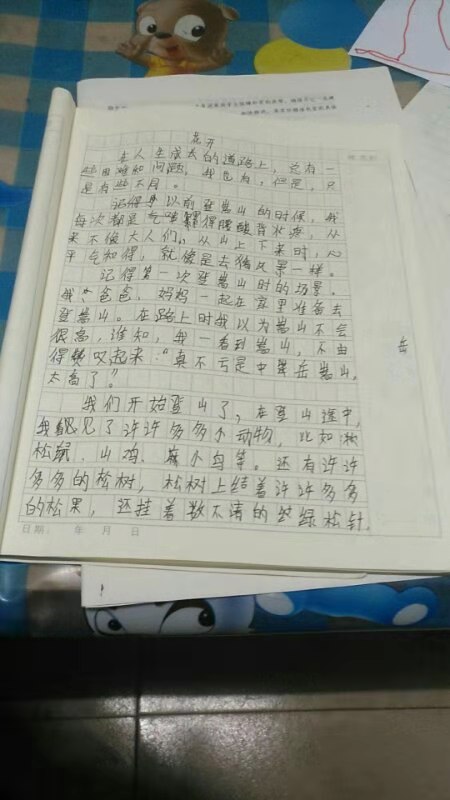 花开
在人生成长的道路上，总有一
些困难和问题，我也有，但是，只
是有些不同。
记得身以前登嵩山的时候，我
每次都是气喘得腰酸背疼，从
来不像大人们，从山上下来时，心
平气和得，就像是去猪风景一样。
记得第一次登嵩山时的场景，
我、爸爸、妈妈一起在家里准备去
登嵩山。在路上时我以为嵩山不会
很高，谁知，我一看到嵩山，不由
得赞叹起来："真不亏是中岳嵩山，
岳
太高了"
我们开始登山了，在登山途中，
我见了许许多多小动物，比如
松鼠、山鸡、小鸟等。还有许许
多多的松树，松树上结着许许多多
的松果，还挂着数不清的绿松针
日期： 年 月 日